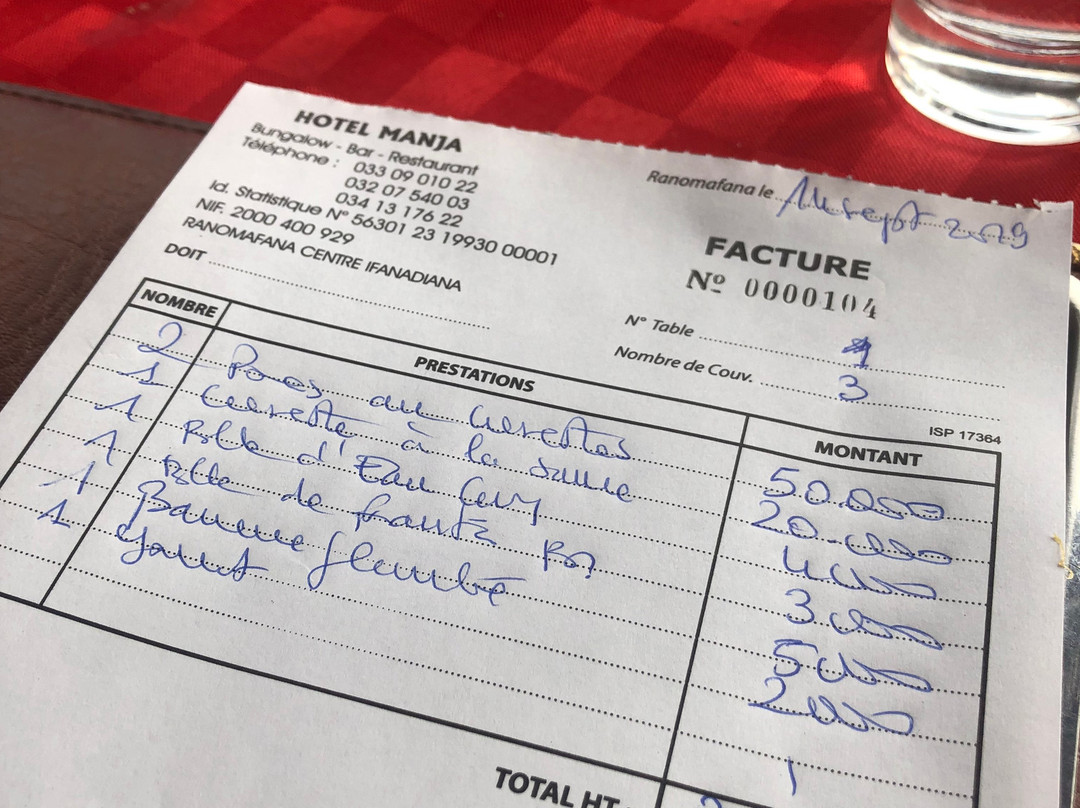 HOTEL MANJA
Bungalow - Bar - Restaurant
Téléphone : 033 09 010 22
032 07 540 03
034 13 176 22
Id. Statistique N° 56301 23 19930 00001
NIF. 2000 400 929
RANOMAFANA CENTRE IFANADIANA
DOIT
Ranomafana le sept 2019
FACTURE
Nº 0000104
N° Table 1
Nombre de Couv. 3
ISP 17364
NOMBRE PRESTATIONS MONTANT
2 au 50.000
1 à la 20.000
1 Blle d'Eau 4000
1 Blle de 3.000
1 Banane flambé 5000
1 Yaout 2000
TOTAL HT